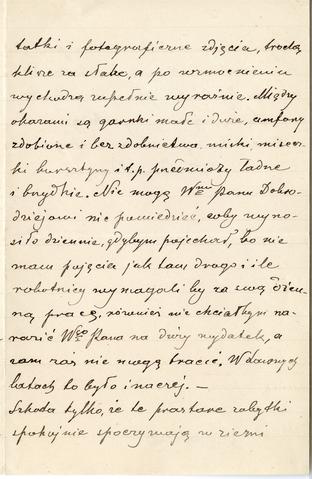 tatki i fotograficzne zdjęcia, trochę
klisze za słabe, a po wzmocnieniu
wychodzą zupełnie wyraźnie. Między
okazami są garnki małe i duże, amfory
zdobione i bez zdobnictwa, miski, misecz-
ki bursztyny i t. p. przedmioty ładne
i brzydkie. Nie mogę Wmu Panu Dobro-
dziejowi nie powiedzieć, coby wyno-
siło dziennie, gdybym pojechał, bo nie
mam pojęcia jak tam drogo i ile
robotnicy wymagali by za swą dzien-
ną pracę, również nie chciałbym na-
razić Wgo Pana na duży wydatek, a
sam zaś nie mogę tracić. W dawnych
latach to było inaczej. —
Szkoda tylko, że te prastare zabytki
spokojnie spoczywają w ziemi